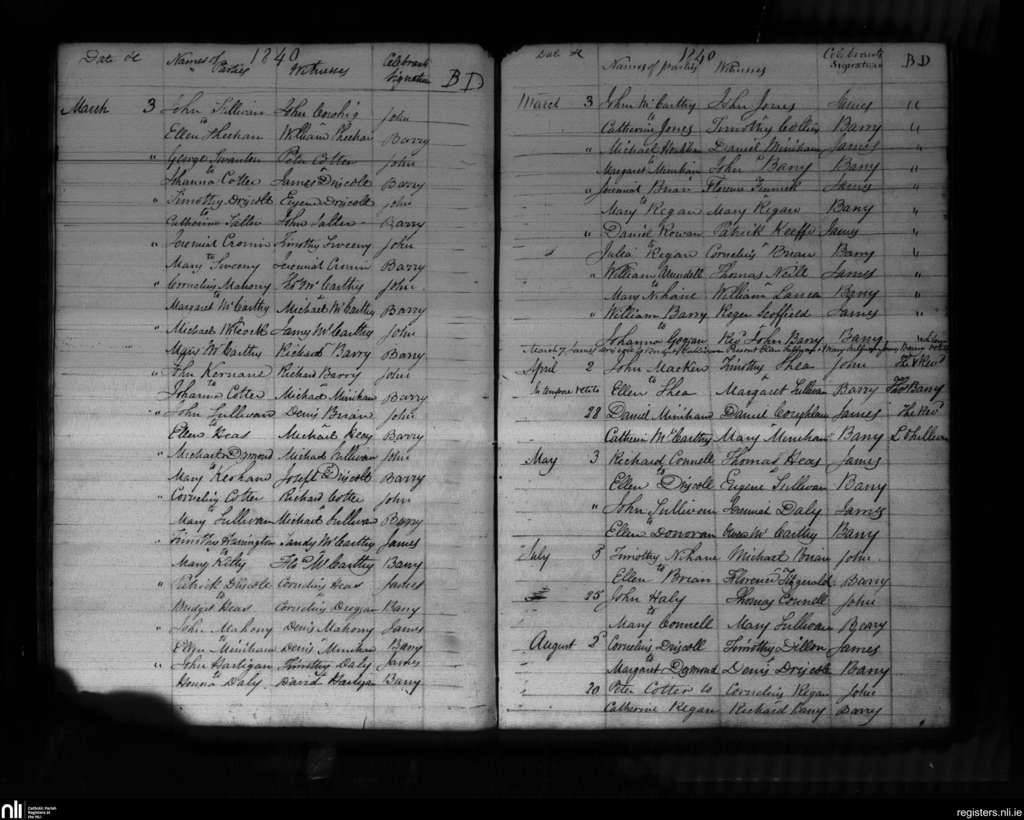 Date &c Names of Parties 1840 Witnesses Celebrants Signation B D
March 3 John Sullivan John Cowhig John
to Ellen Sheehan William Sheehan Barry
" George Swanton Peter Cotter John
to Johanna Cotter James Driscoll Barry
" Timothy Driscoll Eugene Driscoll John
to Catherine Salter John Salter Barry
" Jeremiah Cronin Timothy Sweeny John
to Mary Sweeny Jeremiah Cronin Barry
" Cornelius Mahony Thos McCarthy John
to Margaret McCarthy Michael McCarthy Barry
" Michael McCarthy John
Mary McCarthy Richard Barry Barry
" John Kernane Richard Barry John
to Johanna Cotter Michael Minihan Barry
" John Sullivan Denis Brian John
to Ellen Heas Michael Heas Barry
" Michael Dsmond Michael Sullivan John
to Mary Keohane Joseph Driscoll Barry
" Cornelius Cotter Richard Cotter John
to Mary Sullivan Michael Sullivan Barry
" Timothy Harrington Sandy McCarthy James
to Mary Kelly Thos McCarthy Barry
" Patrick Driscole Cornelius Heas James
to Bridget Heas Cornelius Deegan Barry
" John Mahony Denis Mahony James
to Ellen Minihan Denis Minihan Barry
" John Hartigan Timothy Daly James
to Honora Daly David Hartigan Barry
Date &c 1840 Names of parties Witnesses Celebrants Signation B D
March 3 John McCarthy John Jones James "
to Catherine Jones Timothy Collins Barry "
" Michael Daniel Minihan James "
to Margaret Minihan John Barry Barry "
" Jeremiah Brian Florence James "
to Mary Regan Mary Regan Barry "
" Daniel Rowan Patrick Keeffe James "
to Julia Regan Cornelius Brian Barry "
" William Thomas Neill James "
to Mary Nihane William Barry "
" William Barry Roger Scoffield James "
to Johanna Goggan Revd John Barry Barry
March 7 James
April 2 John Macken Timothy Shea John The Revd
In tempore vetito to Ellen Shea Margaret Sullivan Barry Thos Barry
28 Daniel Minihan Daniel Coughlan James The Revd
Catherin McCarthy Mary Minihan Barry L Sullivan
May 3 Richard Connell Thomas Heas James
to Ellen Driscoll Eugene Sullivan Barry
" John Sullivan Jeremiah Daly James
to Ellen Donovan McCarthy Barry
July 5 Timothy Nihane Michael Brian John
to Ellen Brian Florence Fitzgerald Barry
25 John Haly Thomas Connell John
to Mary Connell Mary Sullivan Barry
August 5 Cornelius Driscoll Timothy Dillon James
to Margaret Dsmond Denis Driscole Barry
20 Peter Cotter to Cornelius Regan John
Catherine Regan Richard Barry
nli Catholic Parish Registers at the NLI
registers.nli.ie